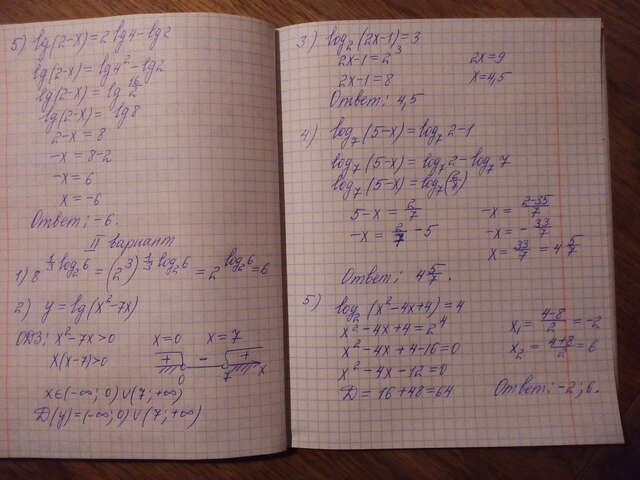 5) lg(2-x)=2lg4-lg2
lg(2-x)=lg4²-lg2
lg(2-x)=lg 16/2
lg(2-x)=lg8
2-x=8
-x=8-2
-x=6
x=-6
Ответ: -6.
II вариант
1) 8^(1/3 log₂6)=(2³)^(1/3 log₂6)=2^(log₂6)=6
2) y=lg(x²-7x)
ОДЗ: x²-7x>0 x=0 x=7
x(x-7)>0 + - +
0 7 x
x∈(-∞;0)∪(7;+∞)
D(y)=(-∞;0)∪(7;+∞)
3) log₂(2x-1)=3
2x-1=2³ 2x=9
2x-1=8 x=4,5
Ответ: 4,5
4) log₇(5-x)=log₇2-1
log₇(5-x)=log₇2-log₇7
log₇(5-x)=log₇(2/7)
5-x=2/7 -x=(2-35)/7
-x=2/7-5 -x=-33/7
x=33/7=4 5/7
Ответ: 4 5/7.
5) log₂(x²-4x+4)=4
x²-4x+4=2⁴ x₁=(4-8)/2=-2
x²-4x+4-16=0 x₂=(4+8)/2=6
x²-4x-12=0
D=16+48=64 Ответ: -2; 6.